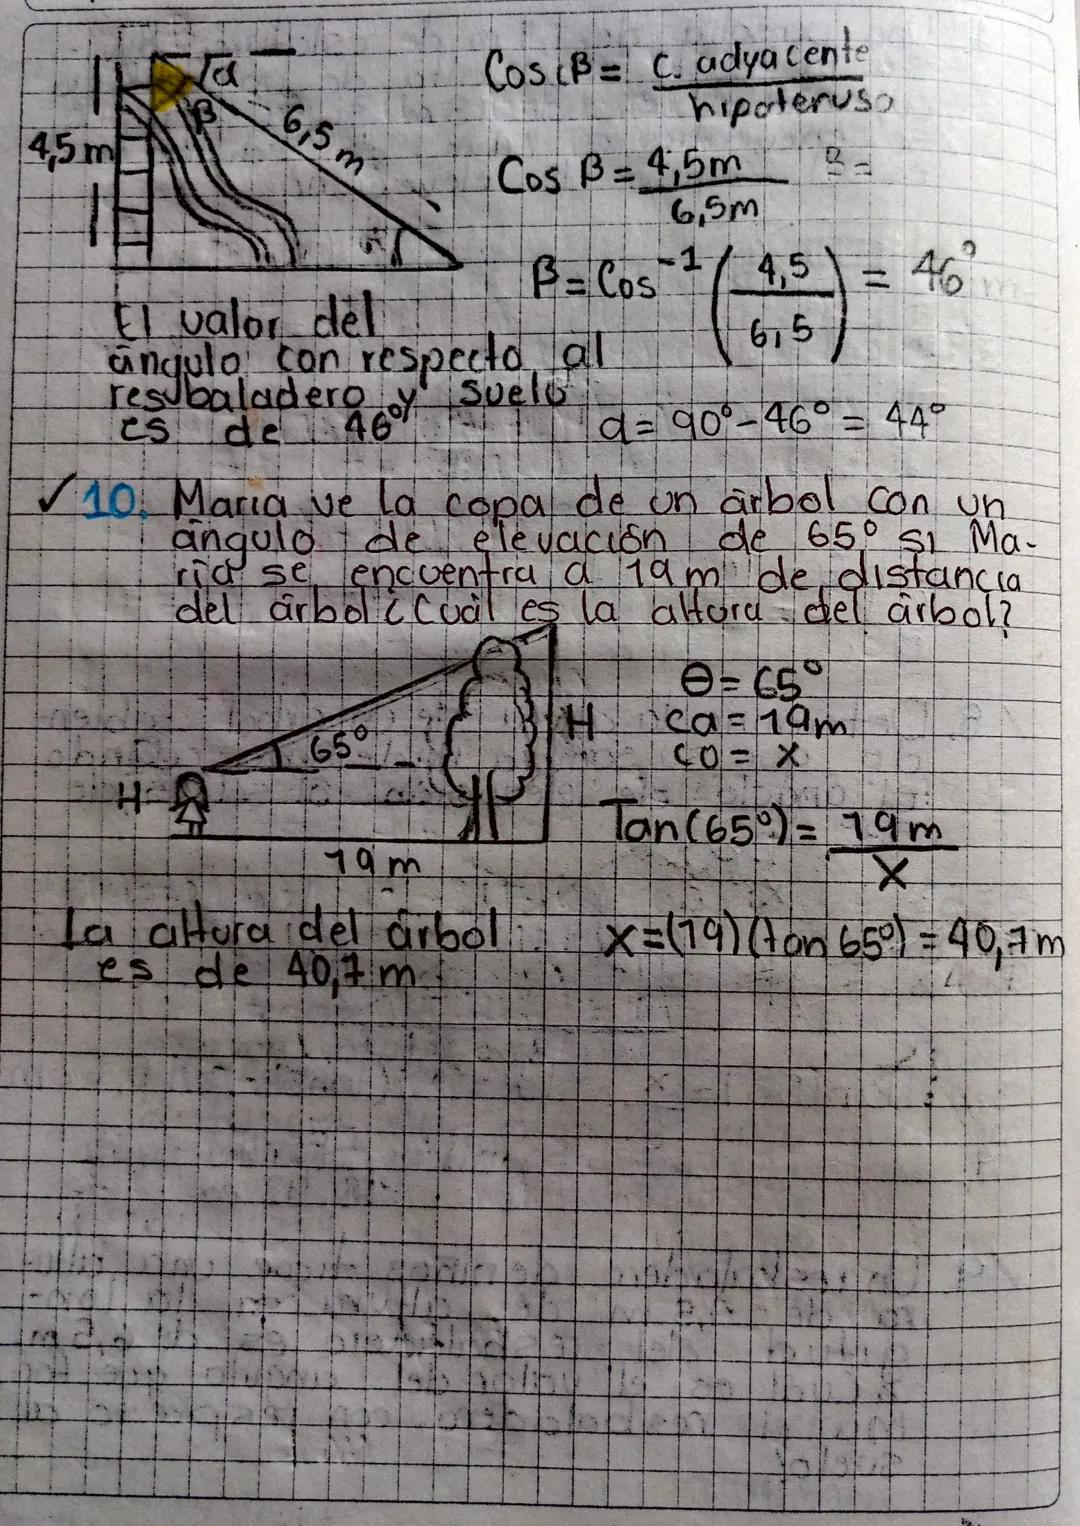 α
β
4,5 m
6,5 m
Cos β = c. adyacente
hipotenusa
Cos β = 4,5m
6,5m
β = Cos⁻¹ (4,5
6,5) = 46°
El valor del
ángulo con respecto al
resbaladero y suelo
es de 46°
α = 90° - 46° = 44°
✓10. Maria ve la copa de un árbol con un
ángulo de elevación de 65° si Ma-
ria se encuentra a 19m de distancia
del árbol ¿Cuál es la altura del árbol?
65°
H
H
19 m
θ = 65°
ca = 19m
co = x
Tan(65°) = 19m
X
x = (19)(tan 65°) = 40,7m
La altura del árbol
es de 40,7 m